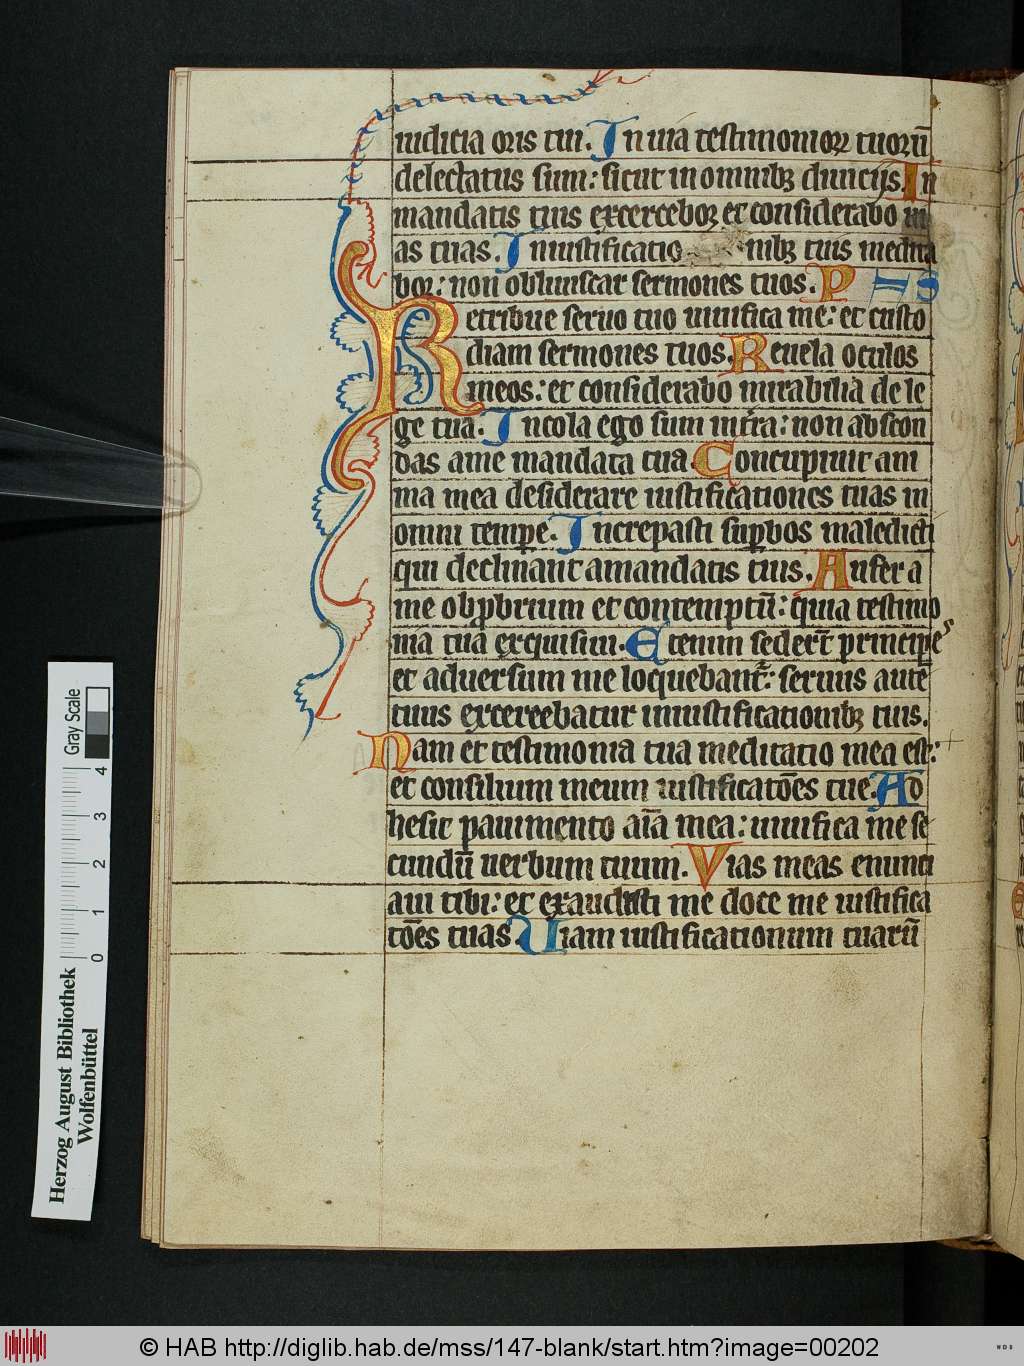 iudicia oris tui. In uia testimonioꝝ tuoꝝū
delectatus sum: sicut in omnibꝫ diuicijs. In
mandatis tuis excerceboꝛ et considerabo ui
as tuas. In iustificatio nibꝫ tuis medita
boꝛ: non obliuiscar sermones tuos. P S
Retribue seruo tuo uiuifica me: et custo
diam sermones tuos. Reuela oculos
meos: et considerabo mirabilia de le
ge tua. Incola ego sum in tꝛa: non abscon
das a me mandata tua. Concupiuit ani
ma mea desiderare iustificationes tuas in
omni tempꝛe. Increpasti suꝑbos maledicti
qui declinant a mandatis tuis. Aufer a
me obꝓbrium et contemptū: quia testimo
nia tua exquisiui. Etenim sederūt principes
et aduersum me loquebant᷑: seruus autē
tuus excercebatur in iustificationibꝫ tuis.
Nam et testimonia tua meditatio mea est:
et consilium meum iustificatōes tue. Ad
hesit pauimento aīa mea: uiuifica me se
cundū uerbum tuum. Vias meas enunti
aui tibi: et exaudisti me doce me iustifica
tōes tuas. Uiam iustificationum tuarū
Gray Scale
4
3
2
1
0
Herzog August Bibliothek
Wolfenbüttel
© HAB http://diglib.hab.de/mss/147-blank/start.htm?image=00202